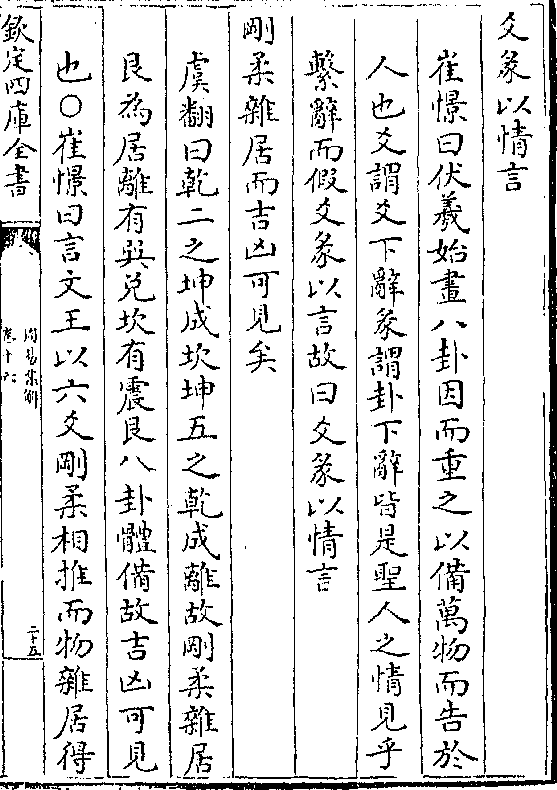 爻彖以情言
崔憬曰伏羲始畫八卦因而重之以備萬物而告於
人也爻謂爻下辭彖謂卦下辭皆是聖人之情見乎
繫辭而假爻彖以言故曰爻彖以情言
剛柔雜居而吉凶可見矣
虞翻曰乾二之坤成坎坤五之乾成離故剛柔雜居
艮為居離有巽兌坎有震艮八卦體備故吉凶可見
也○崔憬曰言文王以六爻剛柔相推而物雜居得
欽定四庫全書
周易集解
卷十六
二十五